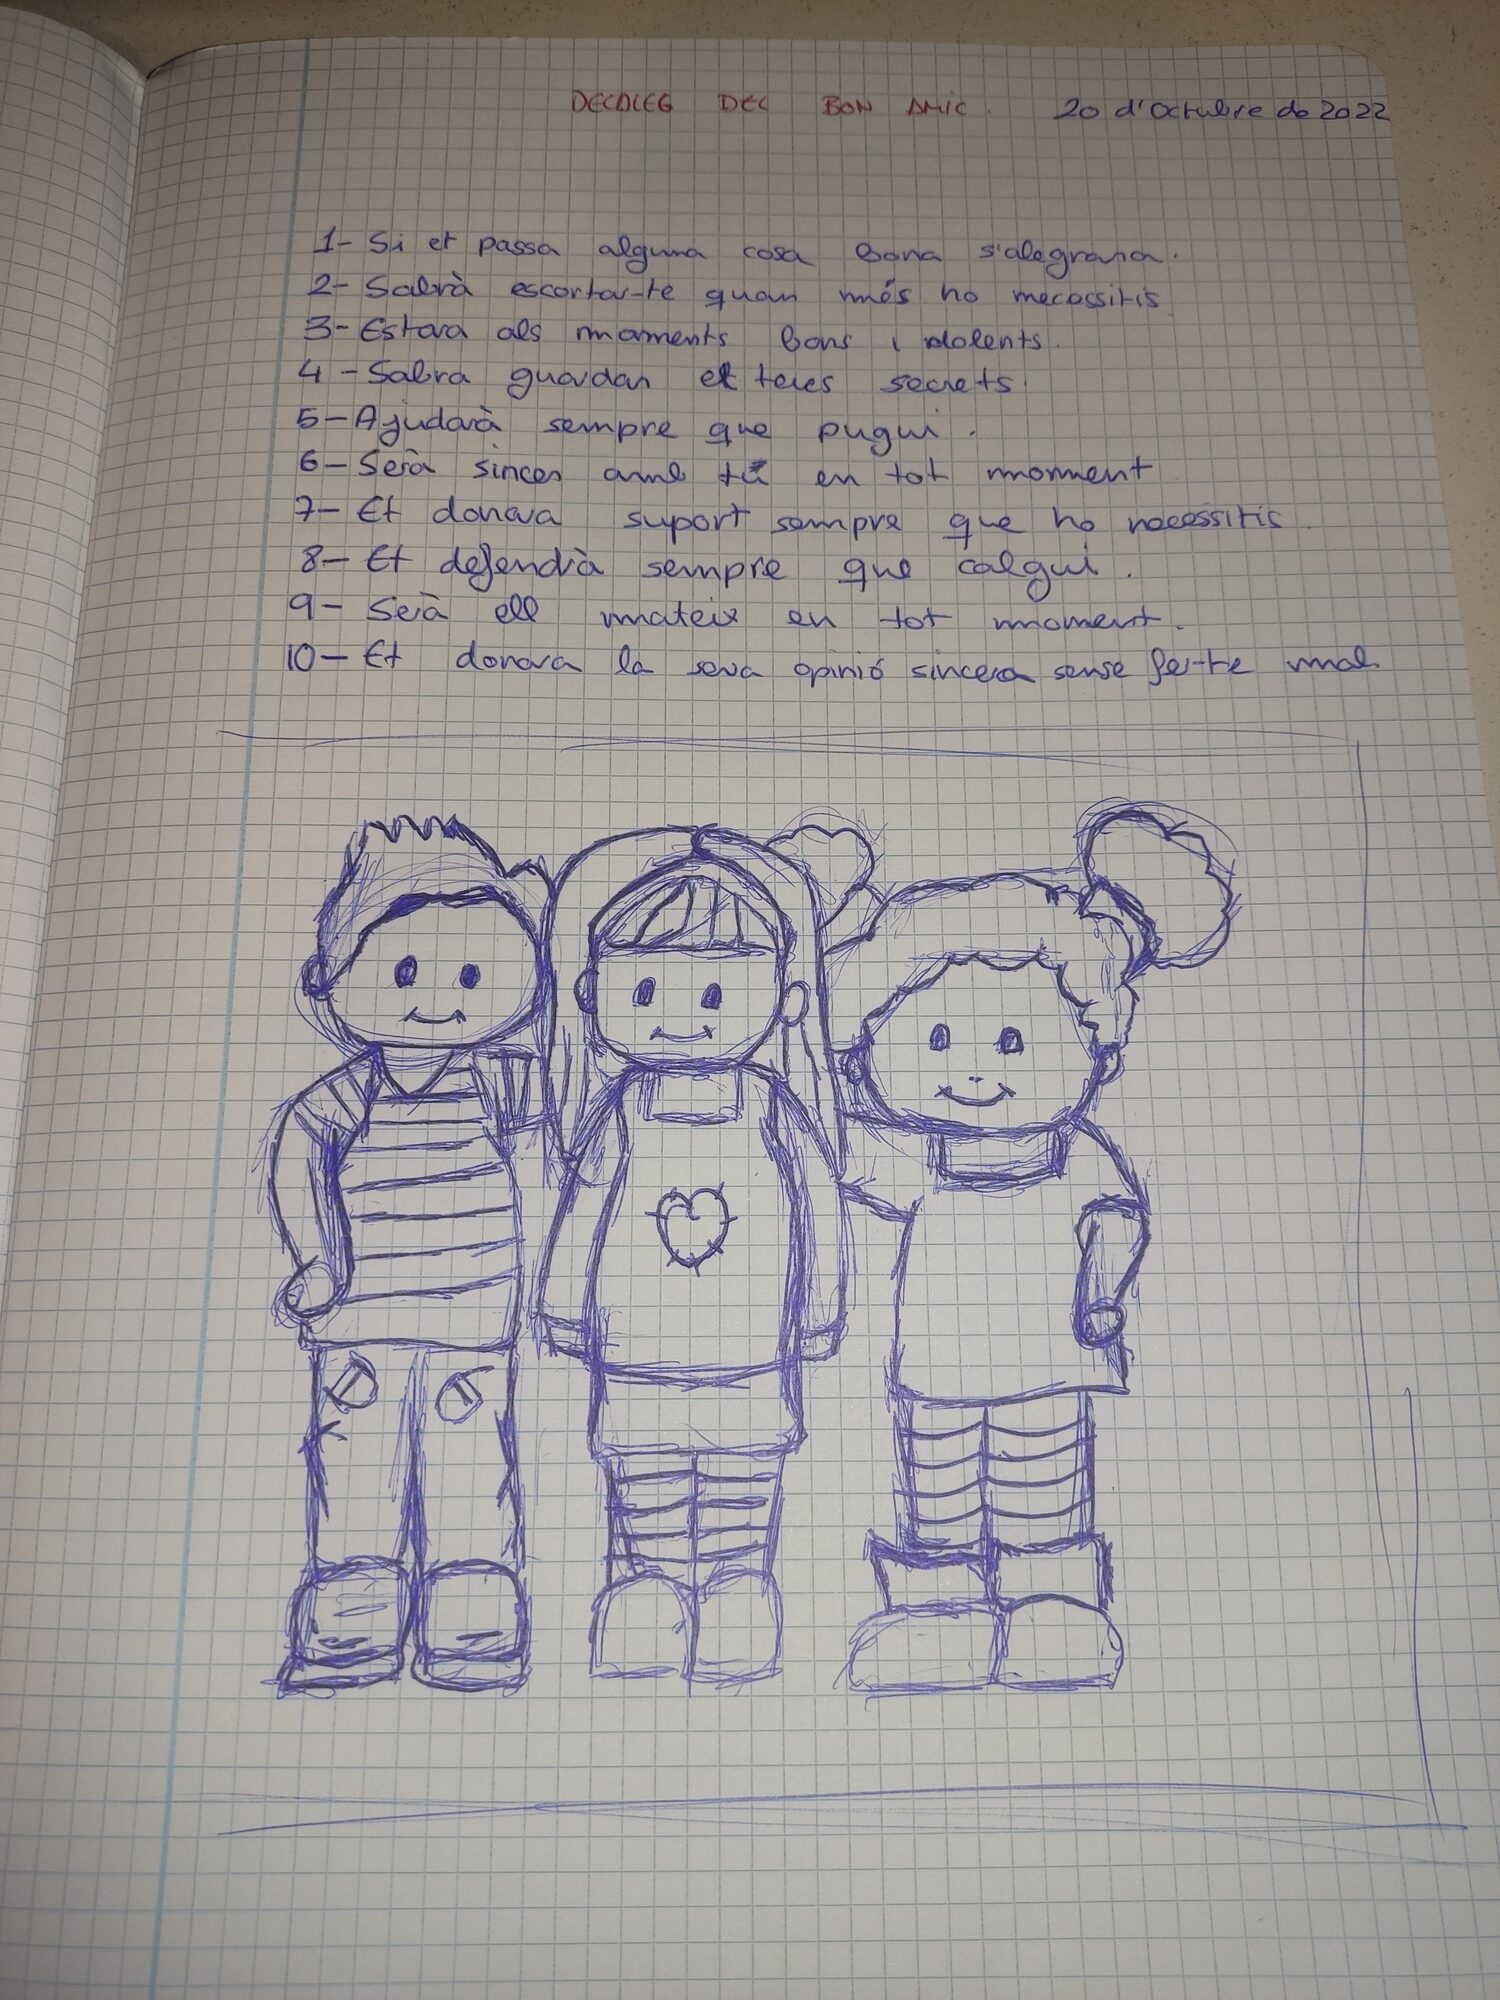 DECÀLEG DEL BON AMIC. 20 d'Octubre de 2022
1- Si et passa alguna cosa bona s'alegrara.
2- Sabrà escortar-te quan més ho necessitis
3- Estara als moments bons i dolents.
4- Sabra guardar et teus secrets.
5- Ajudarà sempre que pugui.
6- Serà sincer amb tú en tot moment
7- Et donara suport sempre que ho necessitis.
8- Et defendrà sempre que calgui.
9- Serà ell mateix en tot moment.
10- Et donara la seva opinió sincera sense fer-te mal